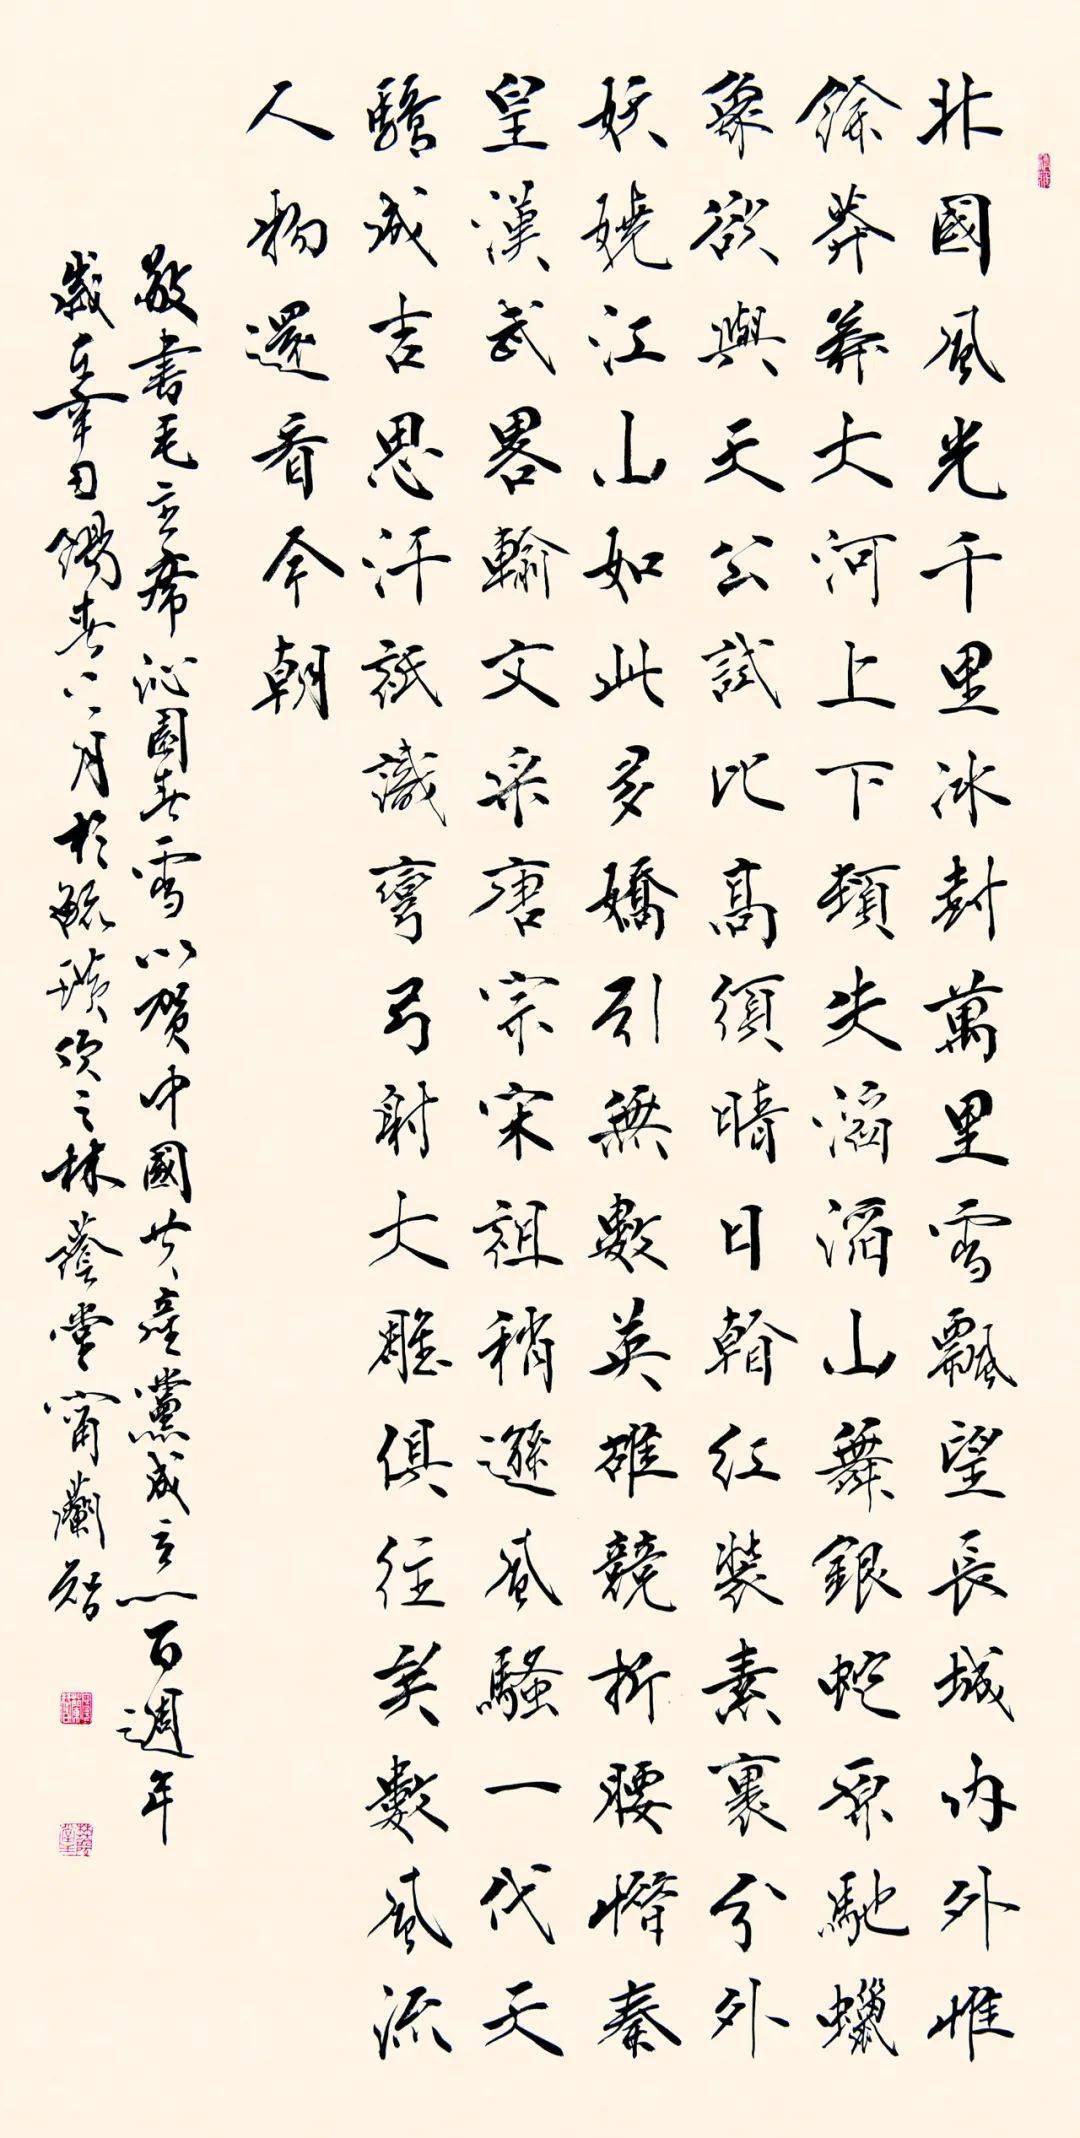 北國風光千里冰封萬里雪飄望長城內外惟
餘莽莽大河上下頓失滔滔山舞銀蛇原馳蠟
象欲與天公試比高須晴日看紅裝素裹分外
妖嬈江山如此多嬌引無數英雄競折腰惜秦
皇漢武畧輸文采唐宗宋祖稍遜風騷一代天
驕成吉思汗祇識彎弓射大雕俱往矣數風流
人物還看今朝
敬書毛主席沁園春雪以賀中國共產黨成立一百週年
歲在辛丑陽春月於毓璜頂之林蔭堂甯蘭智